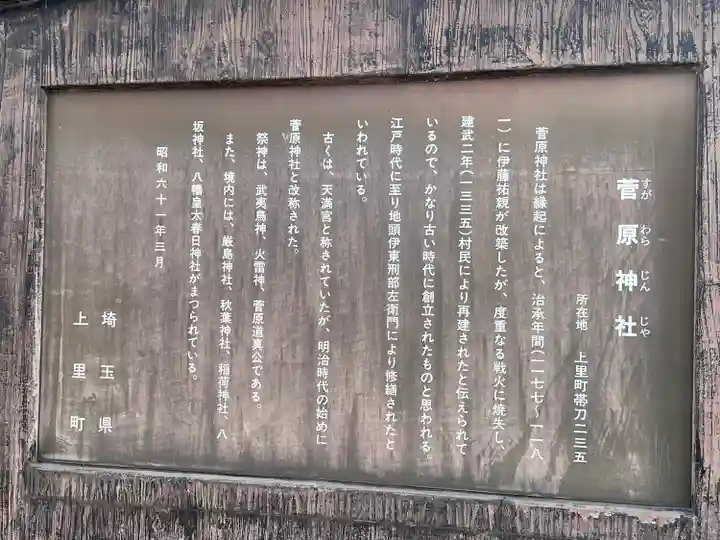 菅原神社
すが わら じん じや
所在地 上里町帯刀二三五
菅原神社は縁起によると、治承年間(一一七七~一一八
一)に伊藤祐親が改築したが、度重なる戦火に焼失し、
建武二年(一三三五)村民により再建されたと伝えられて
いるので、かなり古い時代に創立されたものと思われる。
江戸時代に至り地頭伊東刑部左衛門により修繕されたと
いわれている。
古くは、天満宮と称されていたが、明治時代の始めに
菅原神社と改称された。
祭神は、武夷鳥神、火雷神、菅原道真公である。
また、境内には、厳島神社、秋葉神社、稲荷神社、八
坂神社、八幡皇太春日神社がまつられている。
昭和六十一年三月
埼玉県
上里町